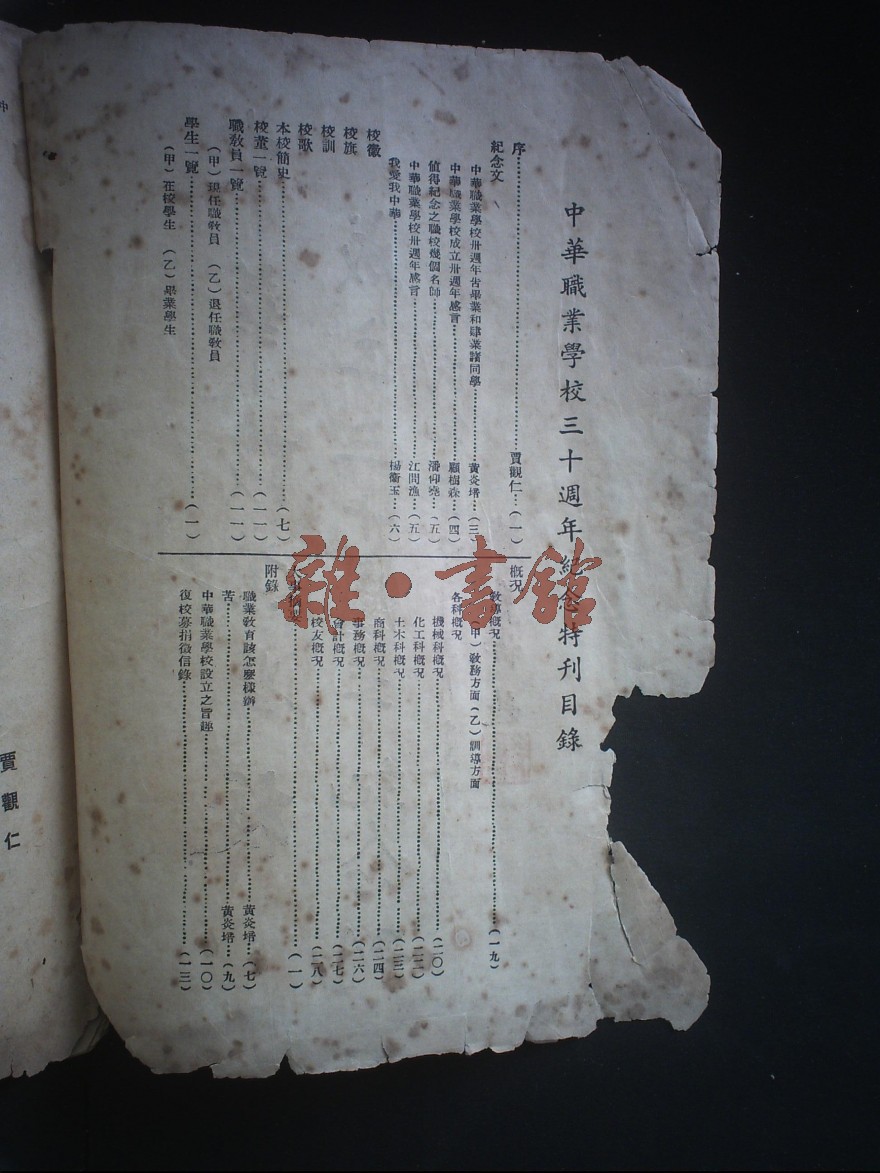 中華職業學校三十週年紀念特刊目錄
序……賈觀仁…(一)
紀念文
中華職業學校卅週年告畢業和肄業諸同學……黃炎培…(三)
中華職業學校成立卅週年感言……顧樹森…(四)
值得紀念之職校幾個名師……潘仰堯…(五)
中華職業學校卅週年感言……江問漁…(五)
我愛我中華……楊衞玉…(六)
校徽
校旗
校訓
校歌
本校簡史……(七)
校董一覽……(一一)
職教員一覽……(一一)
(甲)現任職教員 (乙)退任職教員
學生一覽……(一)
(甲)在校學生 (乙)畢業學生
概況
教導概況……(一九)
(甲)教務方面(乙)訓導方面
各科概況
機械科概況……(二〇)
化工科概況……(二二)
土木科概況……(二三)
商科概況……(二四)
事務概況……(二六)
會計概況……(二七)
校友概況……(二八)
……(一)
附錄
職業教育該怎麼樣辦……黃炎培…(七)
苦……黃炎培…(九)
中華職業學校設立之旨趣……(一〇)
復校募捐徵信錄……(一三)
賈觀仁
中
雜·書館